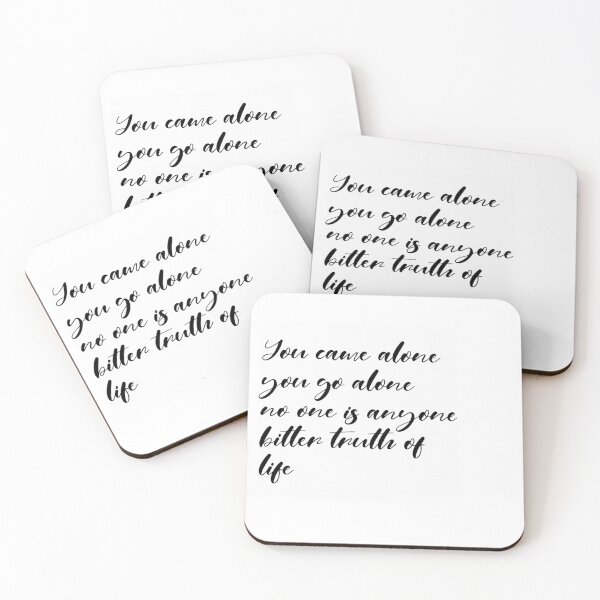 You came alone
you go alone
no one is anyone
You came alone
you go alone
no one is anyone
bitter truth of
life
You came alone
you go alone
no one is anyone
bitter truth of
life
You came alone
you go alone
no one is anyone
bitter truth of
life